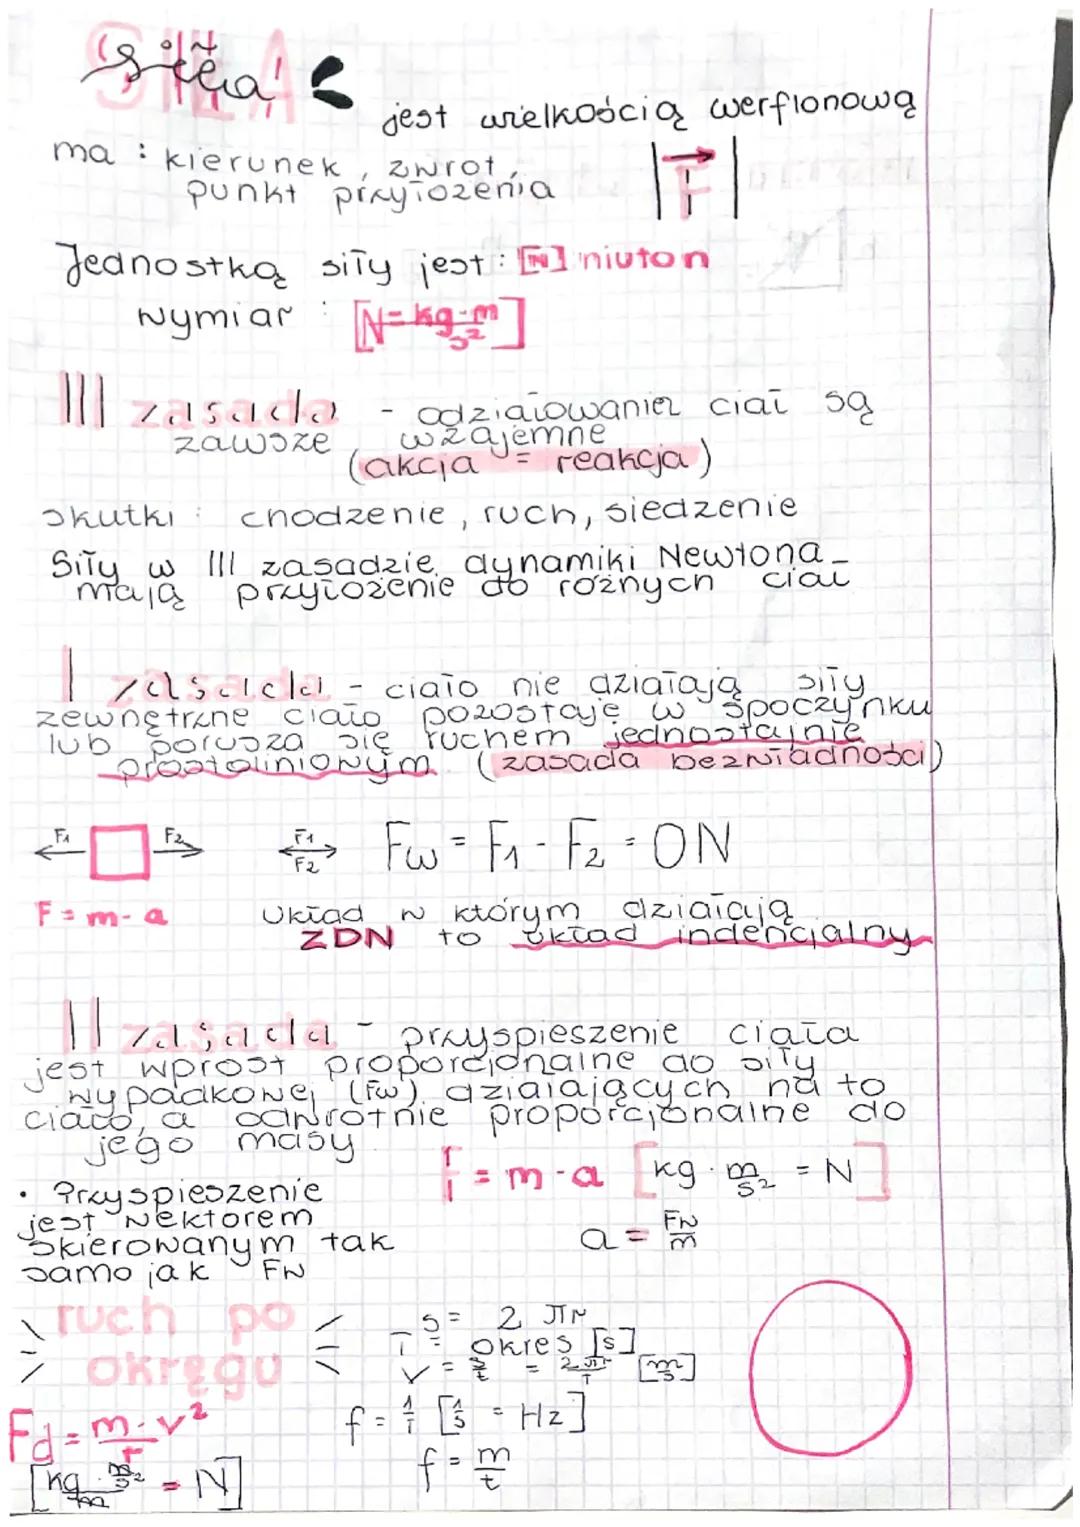 siła
jest wielkością werfionową
ma : kierunek, zwrot,
punkt przyłożenia
|F|
Jednostką siły jest : [N] niuton
wymiar : [N = kg·m/s²]
III zasada - odziaływanier ciał są
zawsze wzajemne
(akcja = reakcja)
skutki : chodzenie, ruch, siedzenie
Siły w III zasadzie dynamiki Newtona
mają przyłożenie do różnych ciał
I zasada - ciało nie działają siły
zewnętrzne ciało pozostaje w spoczynku
lub porusza się ruchem jednostajnie
prostolinionym (zasada bezwładności)
F1 F2 F1 F2 Fw = F1 - F2 = 0N
F = m · a układ w którym działają
ZDN to układ indencjalny
II zasada - przyspieszenie ciała
jest wprost proporcjonalne do siły
wypadkowej (Fw) działających na to
ciało, a odwrotnie proporcjonalne do
jego masy
F = m · a [kg · m/s² = N]
• Przyspieszenie
jest wektorem
skierowanym tak
samo jak Fw
a = Fw/m
ruch po
okręgu
s = 2 πr
T = okres [s]
v = s/t = 2πr/T [m/s]
f = 1/T [1/s = Hz]
f = m/t
Fd = m·v²/r
[kg · m/s² / m = N]